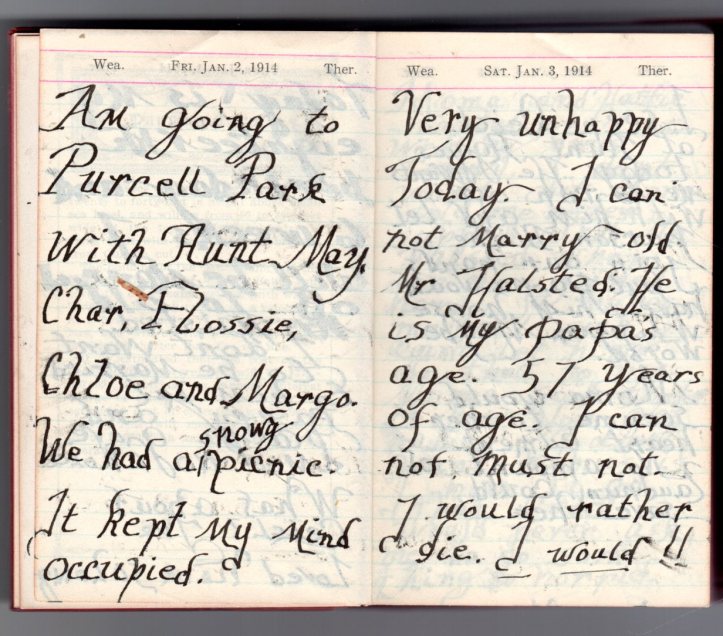 Wea. FRI. JAN. 2, 1914 Ther.
Am going to
Purcell Park
with Aunt May,
Char, Flossie,
Chloe and Margo.
We had a snowy picnic.
It kept my mind
occupied.
Wea. SAT. JAN. 3, 1914 Ther.
Very unhappy
Today. I can
not marry old
Mr Halsted. He
is my papa's
age. 57 years
of age. I can
not. Must not.
I would rather
die. I would!!